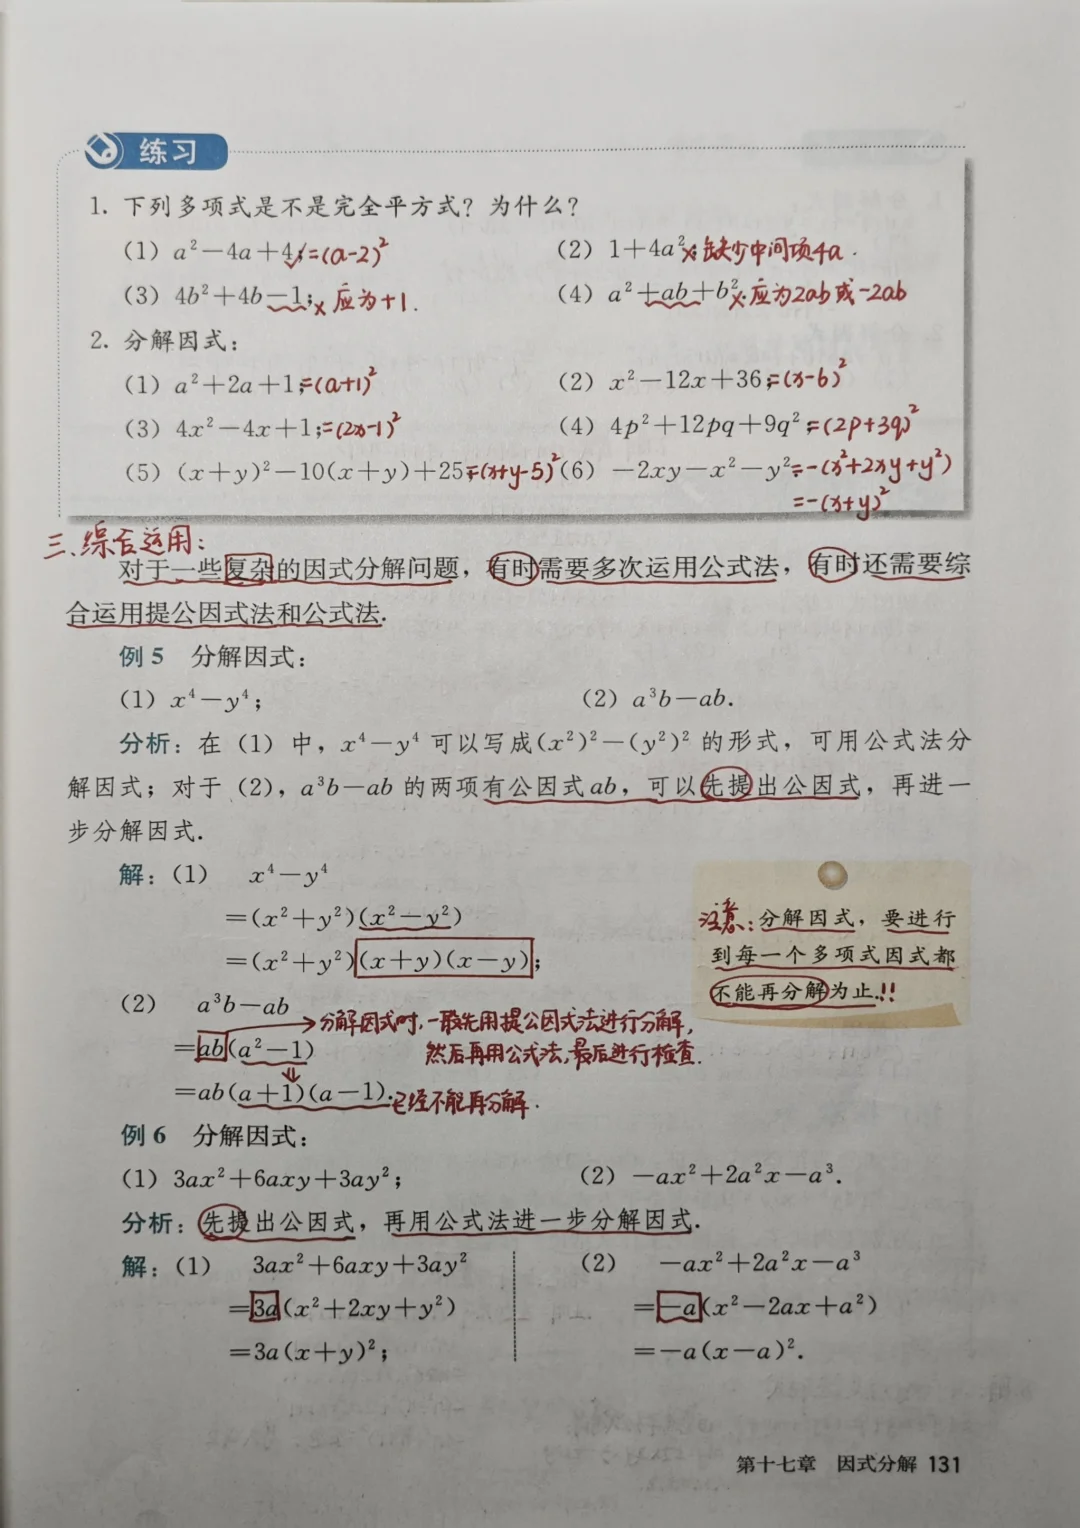 练习
1. 下列多项式是不是完全平方式？为什么？
(1) a²－4a＋4; ✓=(a-2)²
(2) 1＋4a²; ×缺少中间项4a.
(3) 4b²＋4b－1; × 应为+1.
(4) a²＋ab＋b². ×应为2ab或-2ab
2. 分解因式：
(1) a²＋2a＋1; =(a+1)²
(2) x²－12x＋36; =(x-6)²
(3) 4x²－4x＋1; =(2x-1)²
(4) 4p²＋12pq＋9q²; =(2p+3q)²
(5) (x＋y)²－10(x＋y)＋25; =(x+y-5)²
(6) －2xy－x²－y². =-(x²+2xy+y²)
=-(x+y)²
三.综合运用：
对于一些复杂的因式分解问题，有时需要多次运用公式法，有时还需要综
合运用提公因式法和公式法.
例5 分解因式：
(1) x⁴－y⁴;
(2) a³b－ab.
分析：在（1）中，x⁴－y⁴ 可以写成(x²)²－(y²)² 的形式，可用公式法分
解因式；对于（2），a³b－ab 的两项有公因式ab，可以先提出公因式，再进一
步分解因式.
解：(1) x⁴－y⁴
=(x²＋y²)(x²－y²)
=(x²＋y²)(x＋y)(x－y);
注意：分解因式，要进行
到每一个多项式因式都
不能再分解为止.!!
(2) a³b－ab
分解因式时,一般先用提公因式法进行分解,
=ab(a²－1)
然后再用公式法,最后进行检查.
=ab(a＋1)(a－1). 已经不能再分解.
例6 分解因式：
(1) 3ax²＋6axy＋3ay²;
(2) －ax²＋2a²x－a³.
分析：先提出公因式，再用公式法进一步分解因式.
解：(1) 3ax²＋6axy＋3ay²
=3a(x²＋2xy＋y²)
=3a(x＋y)²;
(2) －ax²＋2a²x－a³
=－a(x²－2ax＋a²)
=－a(x－a)².
第十七章 因式分解 131